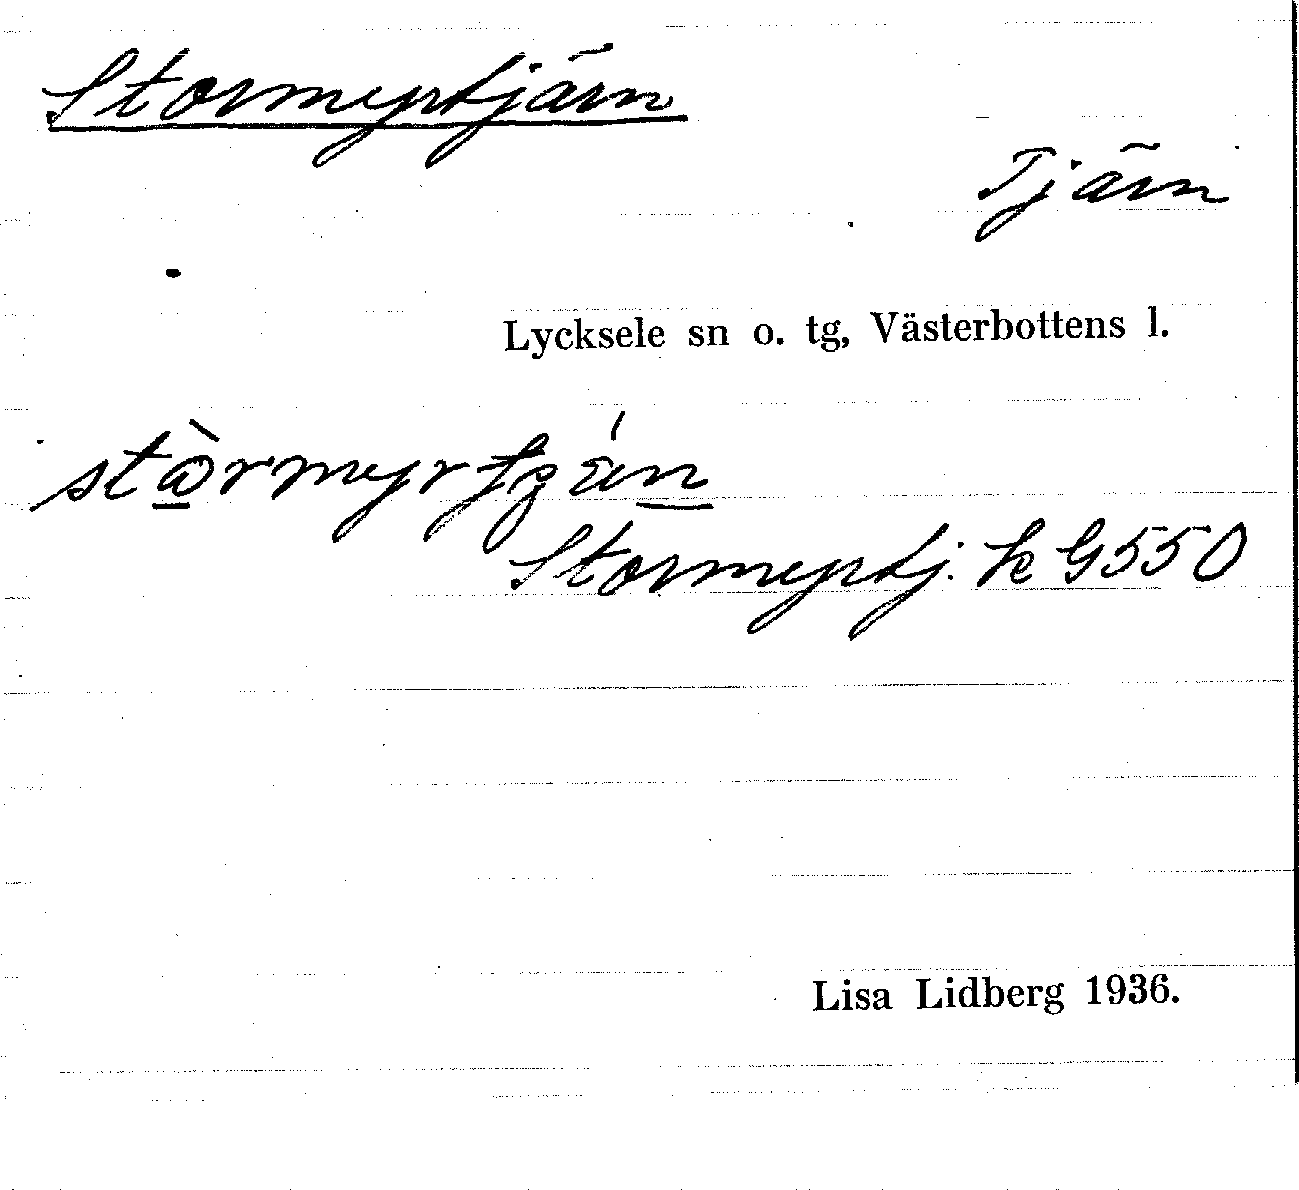 Stormyrtjärn
Tjärn
Lycksele sn o. tg, Västerbottens l.
Stormyrtj. k G550
Lisa Lidberg 1936.